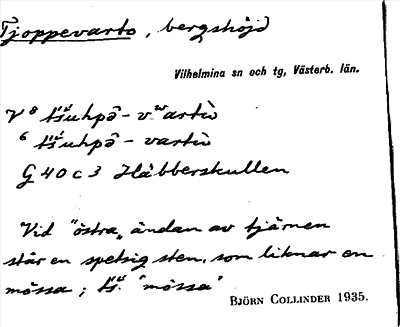 Tjoppevarto, bergshöjd
Vilhelmina sn och tg, Västerb. län.
V 8 tšuhpō̬-vʷartù
6 tšuhpō̬-vartù
G 40 c 3 Häbberskullen
Vid "östra" ändan av tjärnen
står en spetsig sten, som liknar en
mössa; tš. 'mössa'
BJÖRN COLLINDER 1935.